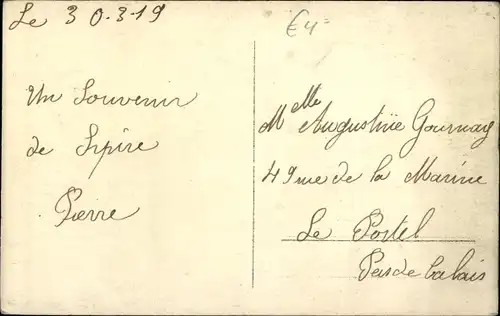 Le 30.3-19
€4=
Un Souvenir
de Spire
Pierre
Melle Augustine Gournay
49 rue de la Marine
Le Portel
Pas de Calais